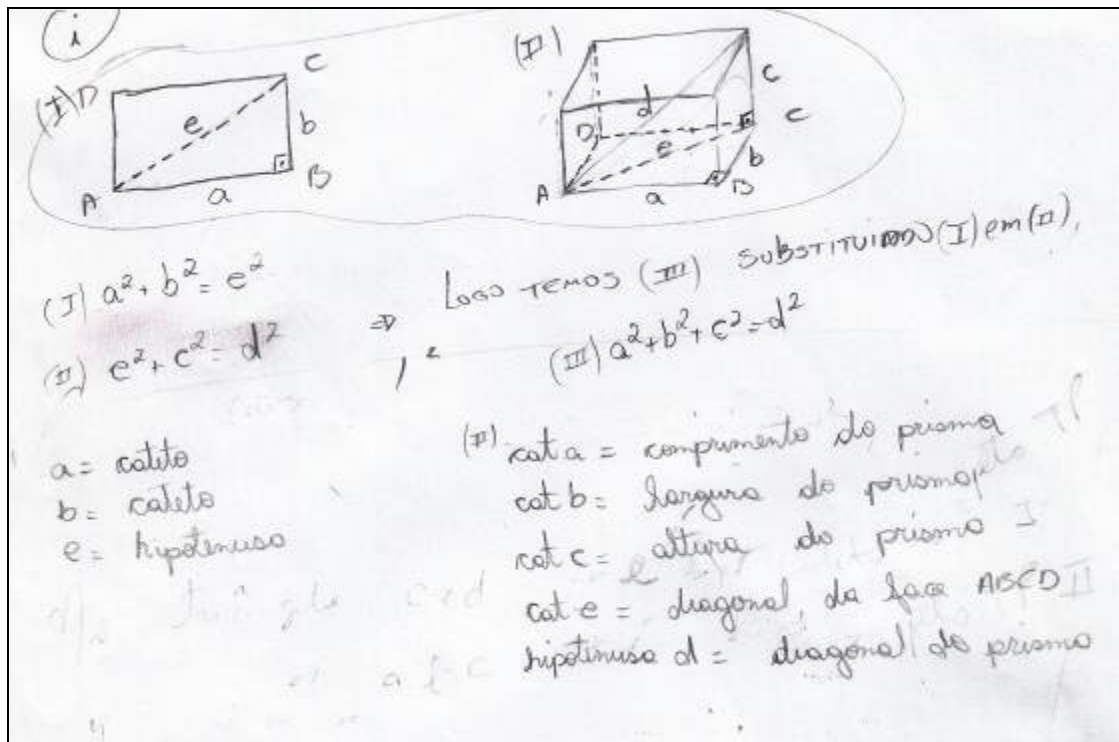 i
(I) D C
e b
A a B
(II)
d c
D e C
b
A a B
(I) a² + b² = e²
(II) e² + c² = d²
⇒ LOGO TEMOS (III) SUBSTITUINDO (I) em (II),
(III) a² + b² + c² = d²
a = cateto
b = cateto
e = hipotenusa
(II) cat a = comprimento do prisma
cat b = largura do prisma
cat c = altura do prisma
cat e = diagonal, da face ABCD
hipotenusa d = diagonal do prisma